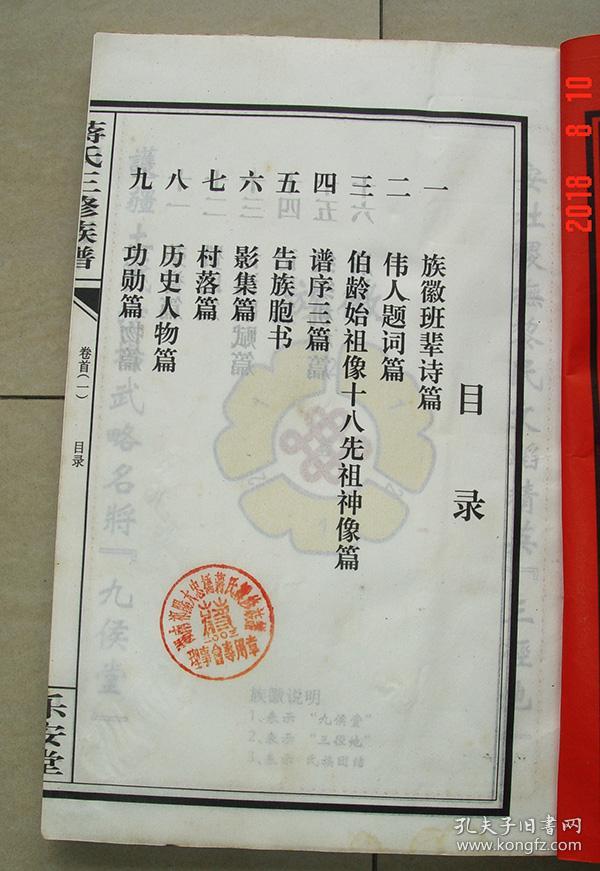 目录
一 族徽班辈诗篇
二 伟人题词篇
三 伯龄始祖像十八先祖神像篇
四 谱序三篇
五 告族胞书
六 影集篇
七 村落篇
八 历史人物篇
九 功勋篇
蒋氏三修族谱
卷首(一)
目录
乐安堂
族徽说明
1、表示 “九侯堂”
2、表示 “三径地”
3、表示 民族团结
2018 8 10
孔夫子旧书网
www.kongfz.com